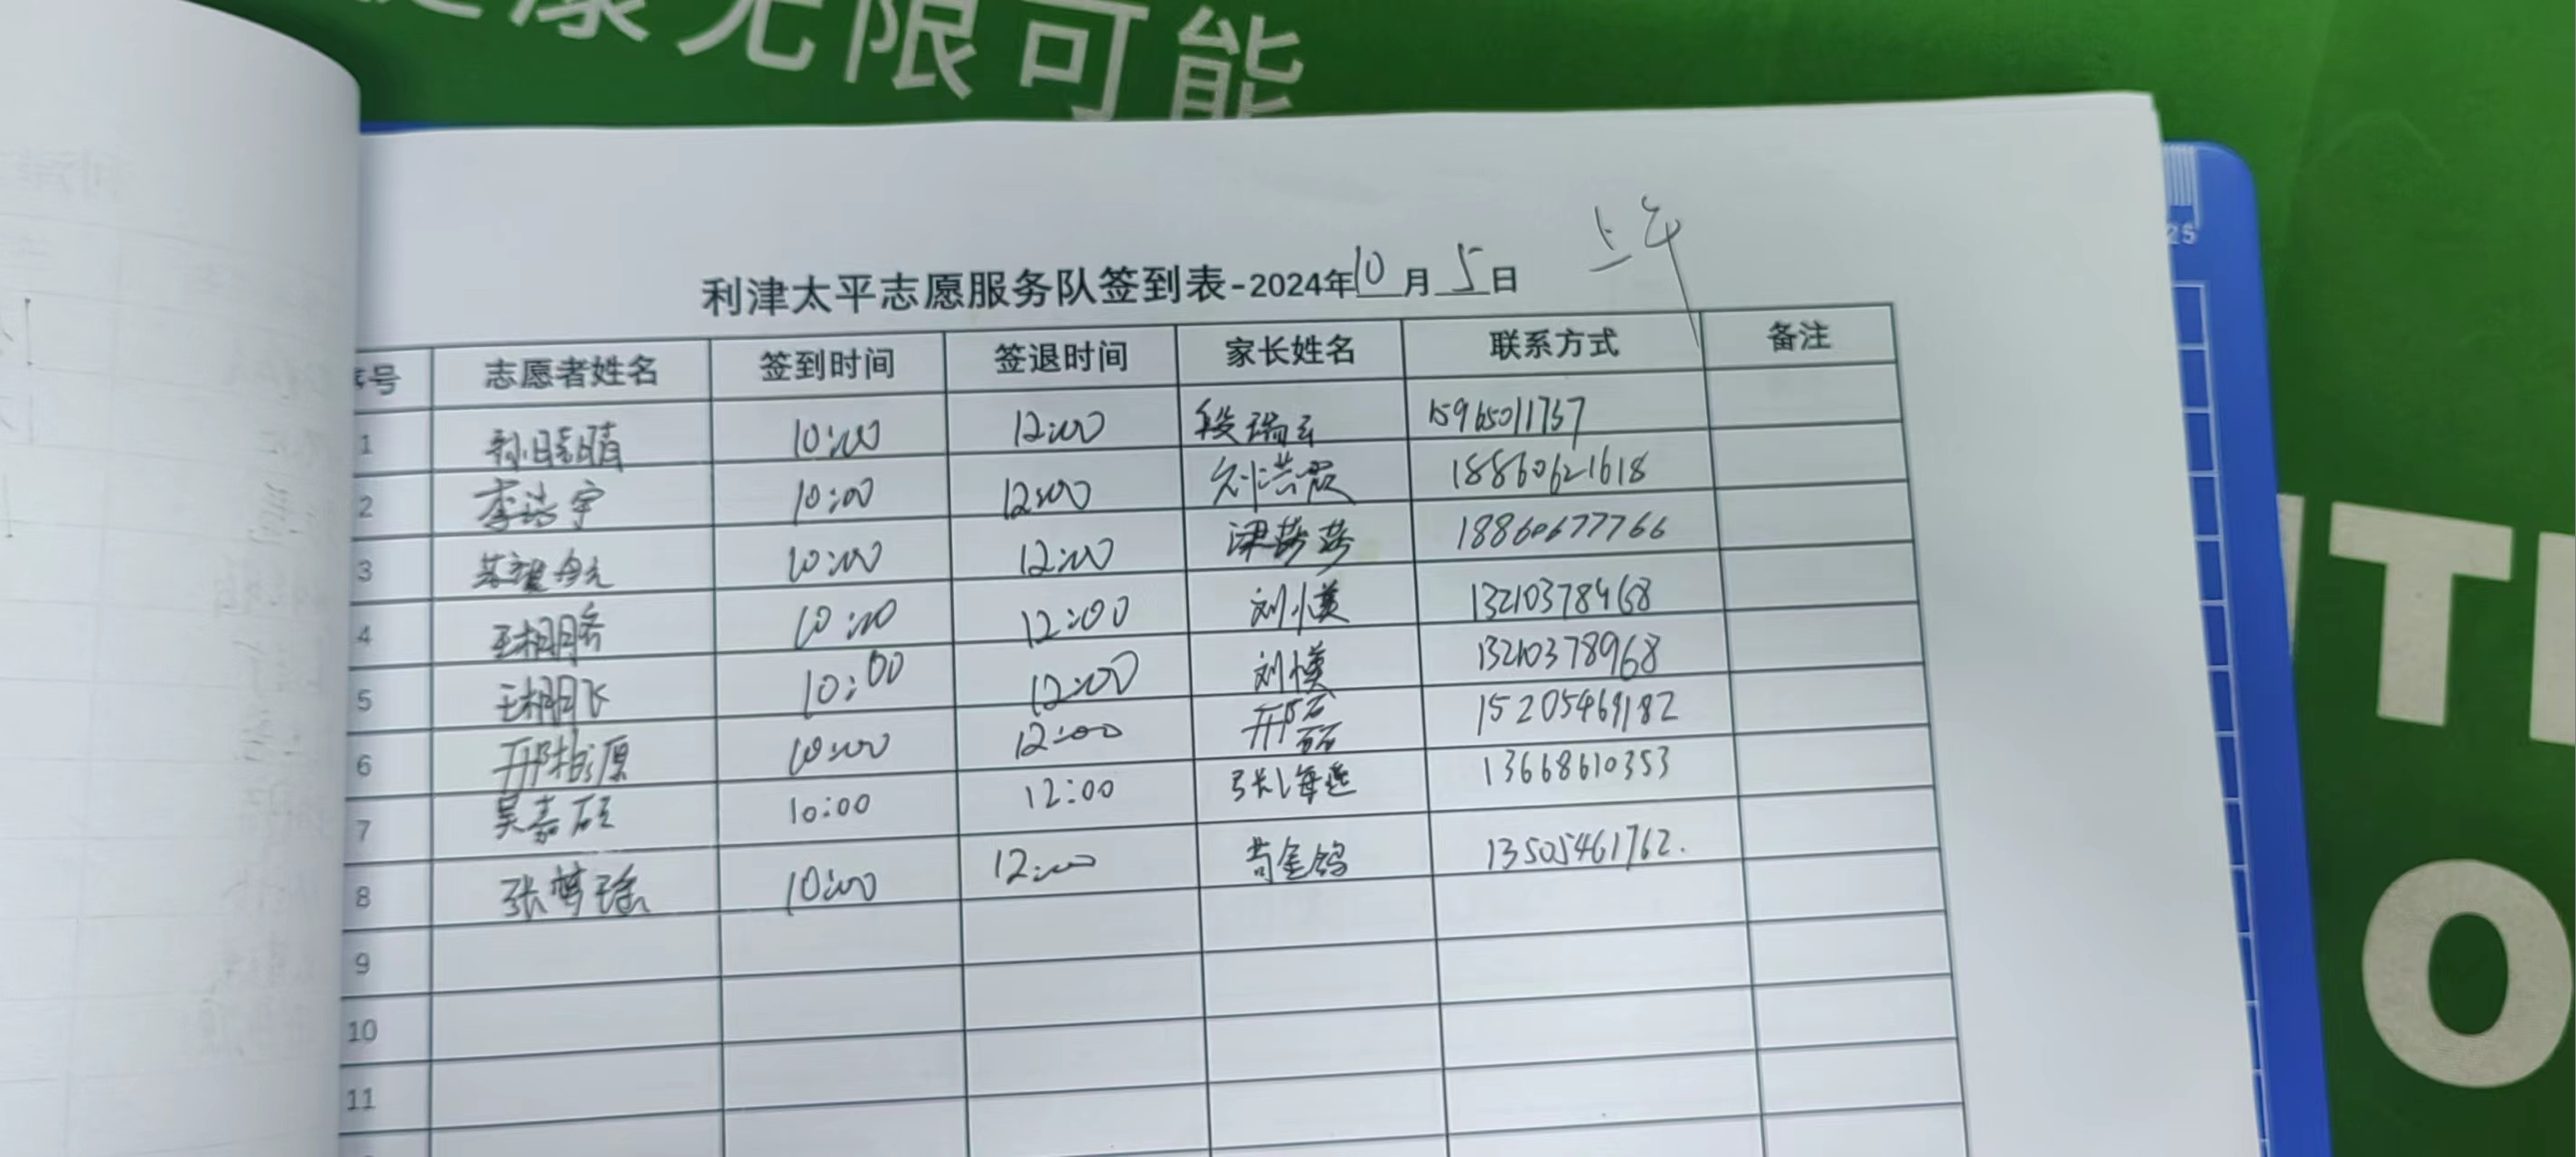 健康无限可能
25
上午
利津太平志愿服务队签到表-2024年10月5日
序号 志愿者姓名 签到时间 签退时间 家长姓名 联系方式 备注
1 10:00 12:00 段瑞云 15965011737
2 李浩宇 10:00 12:00 刘洪霞 18860621618
3 10:00 12:00 梁莎莎 18860677766
4 王棚 10:00 12:00 刘小漠 13210378968
5 王棚飞 10:00 12:00 13210378968
6 邢柏源 10:00 12:00 邢磊 15205469182
7 吴嘉硕 10:00 12:00 张海莲 13668610353
8 张梦瑶 10:00 12:00 苟金鸽 13505461762.
9
10
11